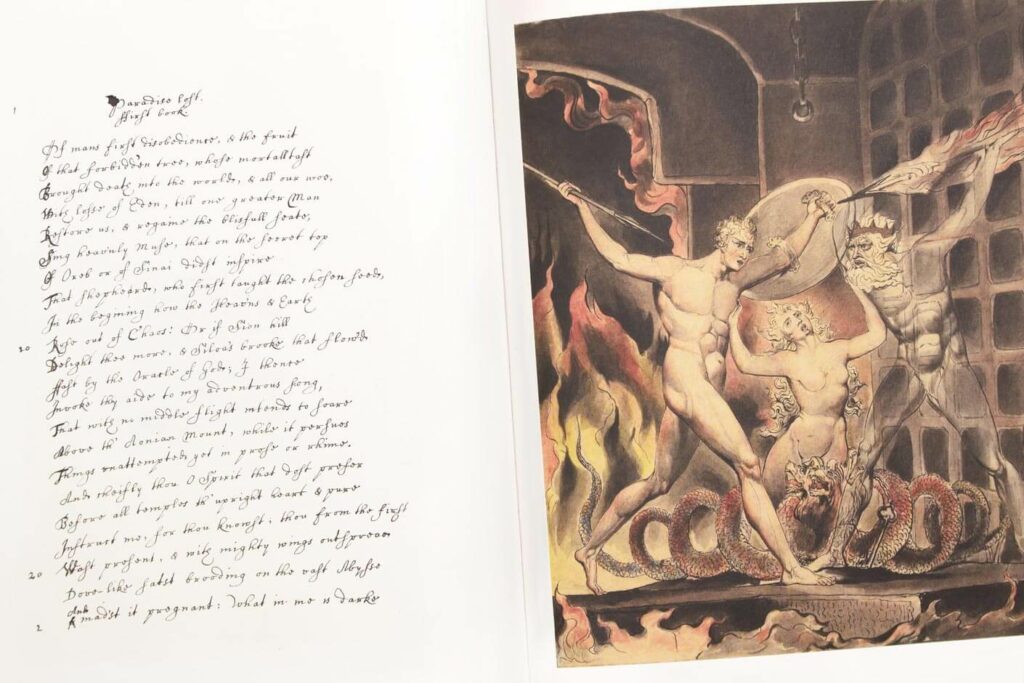 1
Paradise lost.
ffirst book.
Of mans first disobedience, & the fruit
Of that forbidden tree, whose mortall tast
Brought death into the world, & all our woe,
With losse of Eden, till one greater Man
Restore us, & regaine the blissfull seate,
Sing heavnly Muse, that on the secret top
Of Oreb or of Sinai didst inspire
That shepheard, who first taught the chosen seede,
In the beginning how the Heavns & Earth
10 Rose out of Chaos: Or if Sion hill
Delight thee more, & Siloa's brooke that flow'd
ffast by the Oracle of God; I thence
Invoke thy aide to my adventrous song,
That with no middle flight intends to soare
Above th' Aonian Mount, while it persues
Things unattempted yet in prose or rhime.
And cheifly thou O Spirit that dost prefer
Before all temples th' upright heart & pure
Instruct me, for thou knowst; thou from the first
20 Wast present, & with mighty wings outspread
Dove-like satst brooding on the vast Abysse
And
2 madst it pregnant: What in me is darke